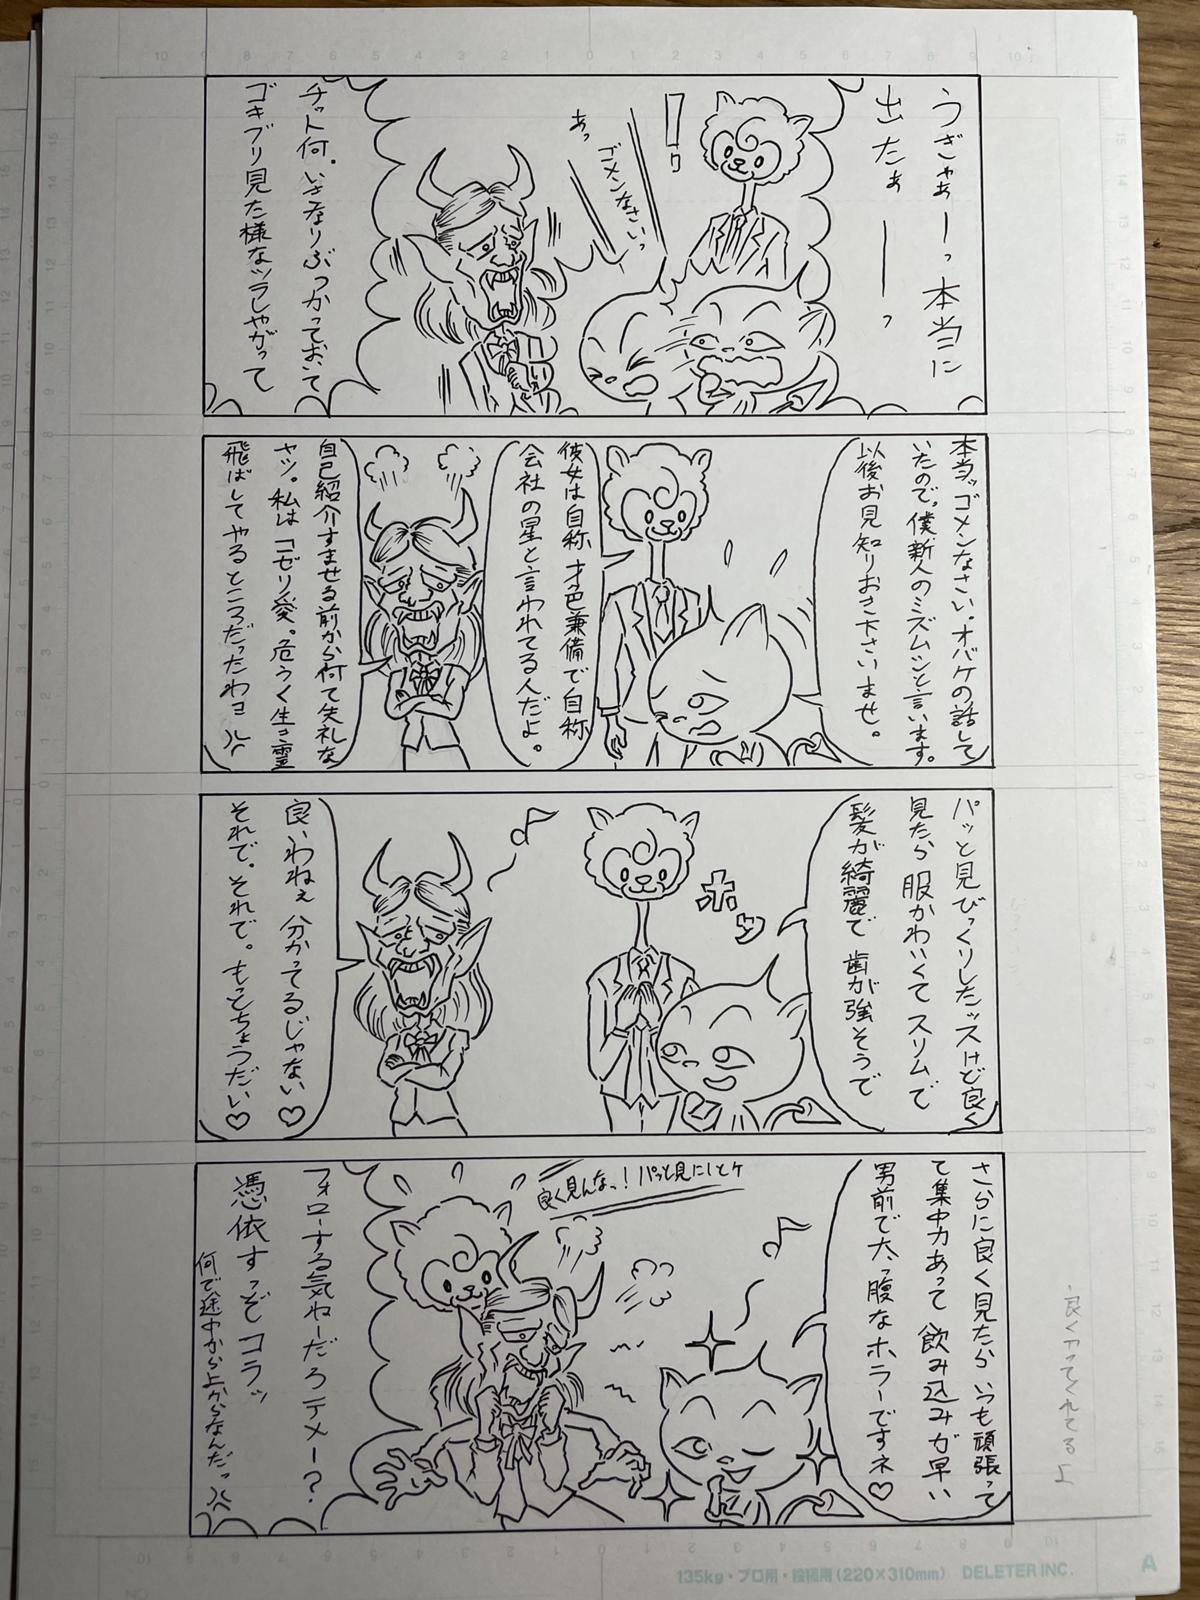 うぎゃあーっ本当に
出たぁーーっ
!!
あっ
ゴメンなさいっ
チット何.いきなりぶつかっておいて
ゴキブリ見た様なツラしやがって
本当ッゴメンなさい。オバケの話して
いたので。僕新人のミズムシと言います。
以後お見知りおき下さいませ。
彼女は自称 才色兼備で自称
会社の星と言われてる人だよ。
自己紹介すませる前から何て失礼な
ヤツ。私はコゼリ愛。危うく生き霊
飛ばしてやるところだったわョ
パッと見びっくりしたッスけど良く
見たら 服かわいくて スリムで
髪が綺麗で 歯が強そうで
ホッ
良いわねぇ 分かってるじゃない♡
それで。それで。もっとちょうだい♡
さらに良く見たら いつも頑張って
て集中力あって 飲み込みが早い
男前で太っ腹なホラーですネ♡
良く見んなっ! パッと見にしとケ
フォローする気ねーだろテメー?
憑依すっぞコラッ
何で途中から上からなんだっ
135kg・プロ用・投稿用(220×310mm) DELETER INC.
A